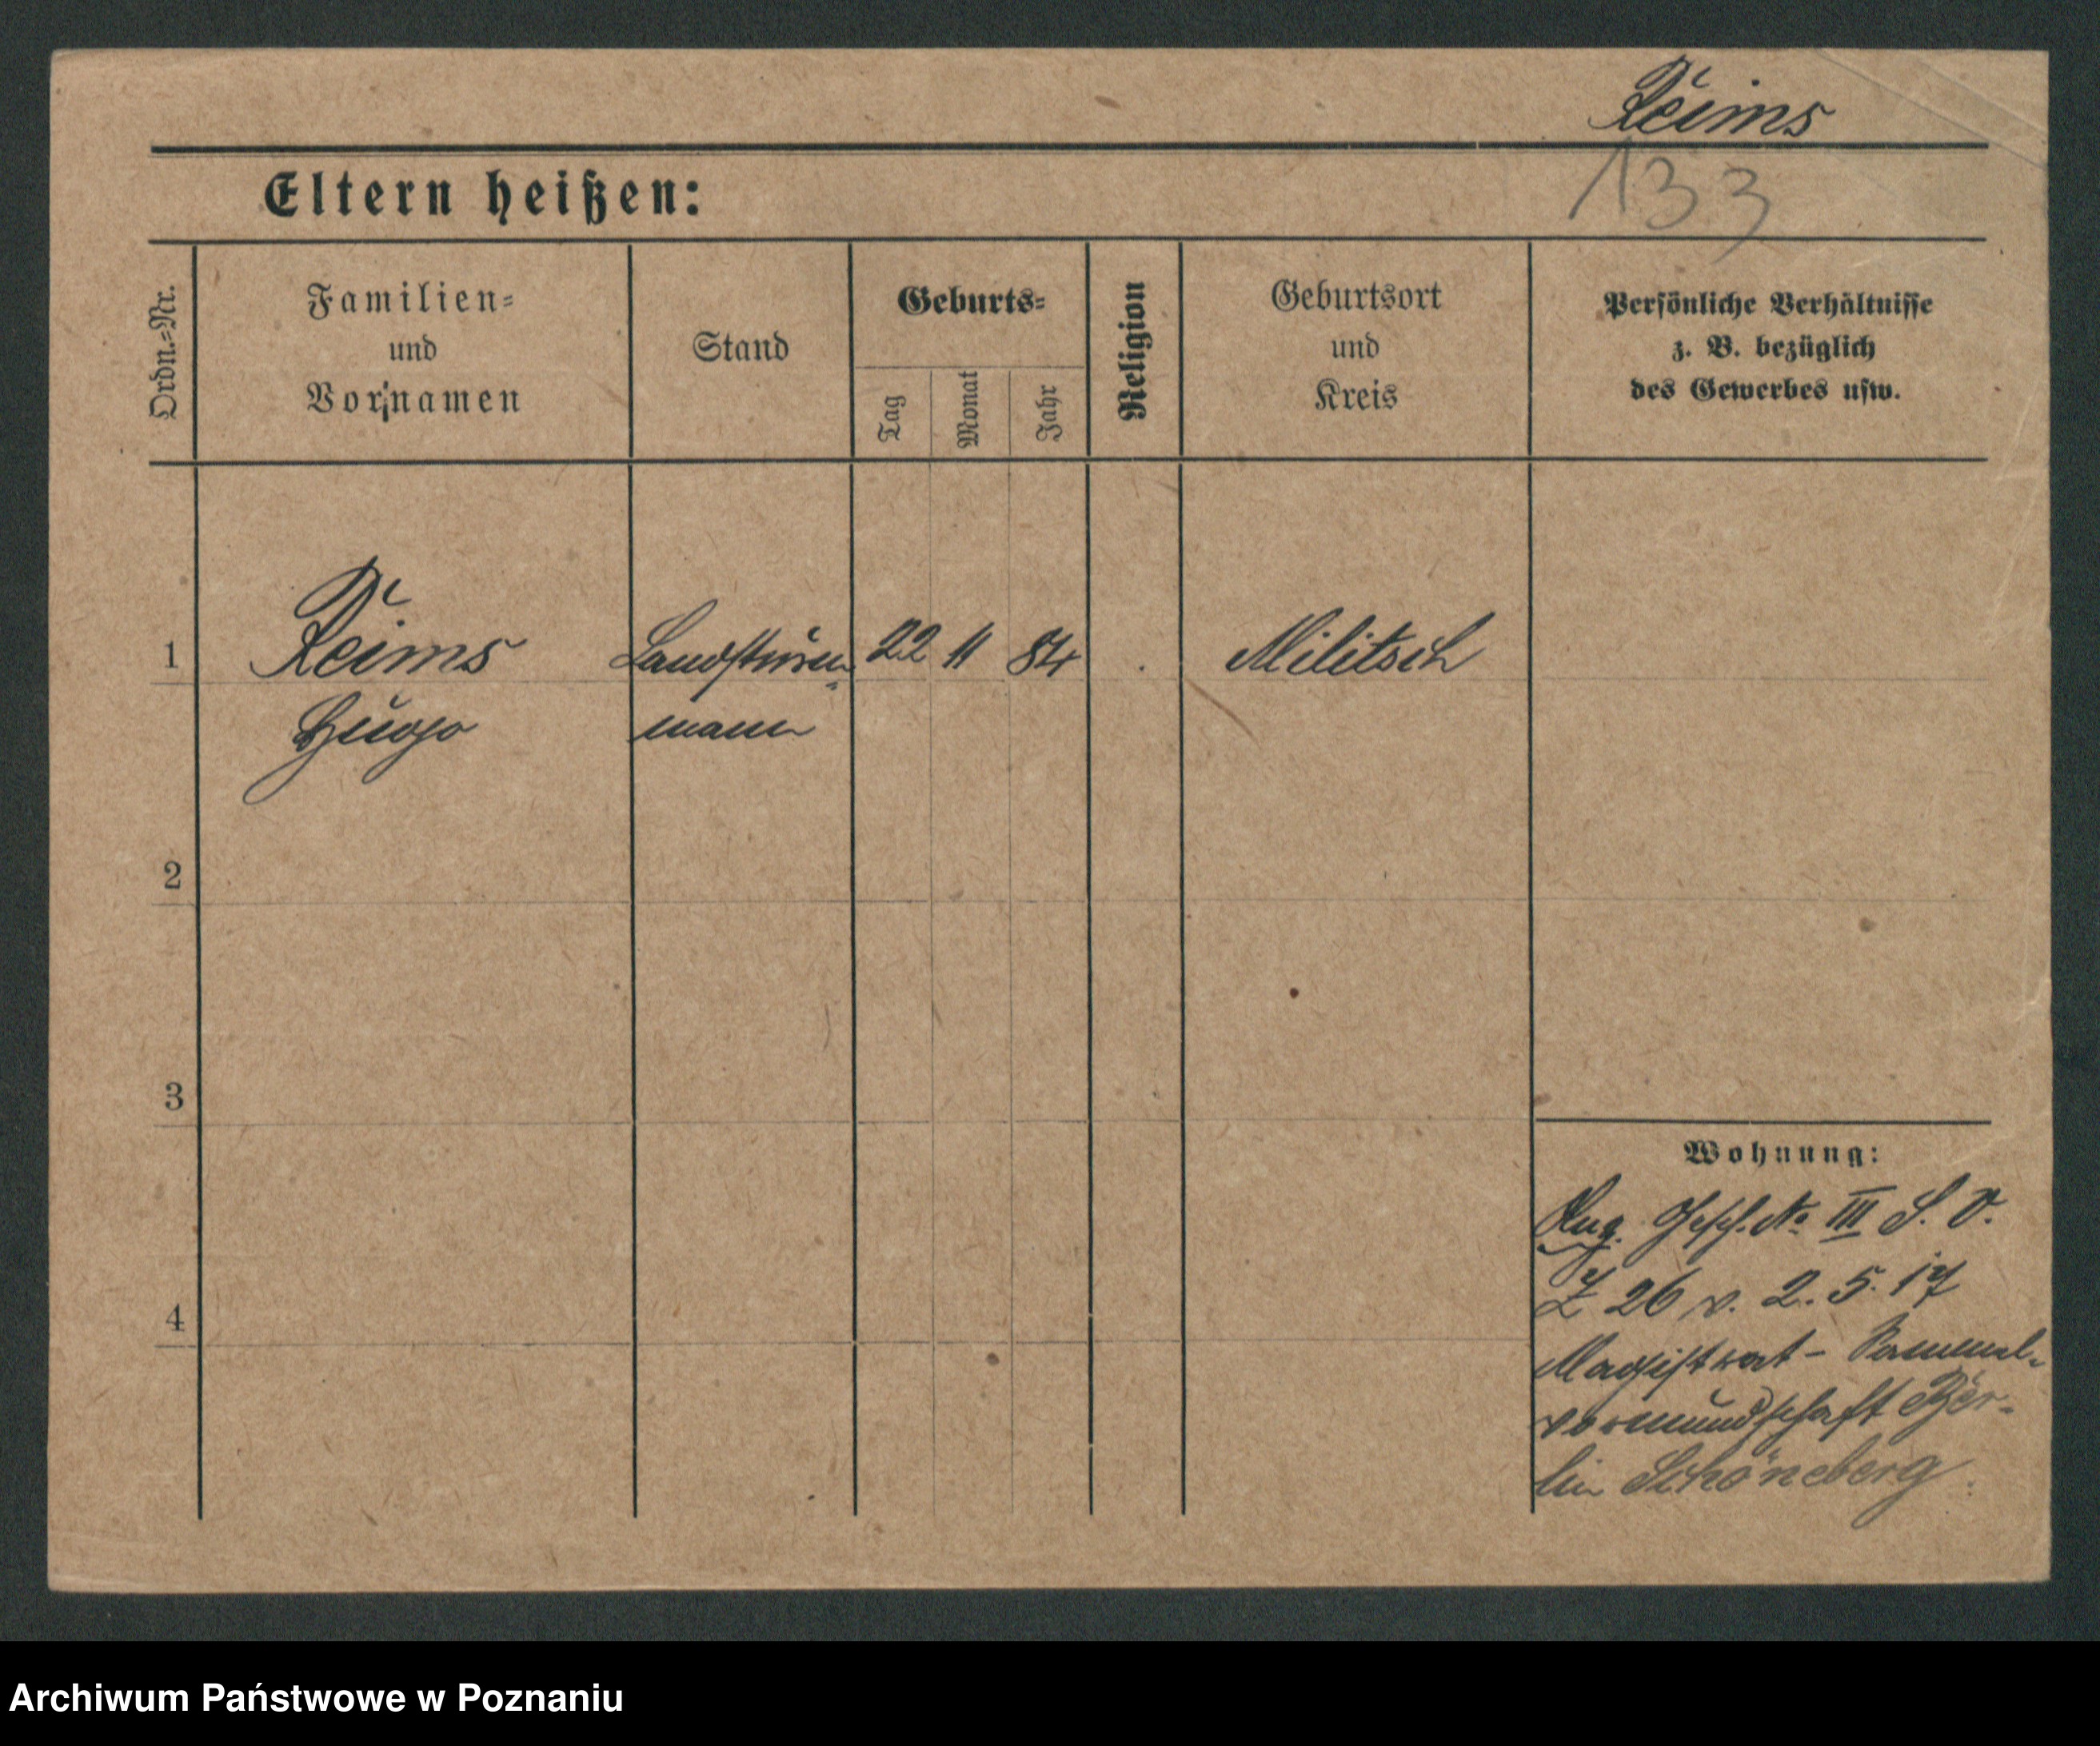 Reims
133
Eltern heißen:
Ordn.=Nr.
Familien=
und
Vornamen
Stand
Geburts=
Tag
Monat
Jahr
Religion
Geburtsort
und
Kreis
Persönliche Verhältnisse
z. B. bezüglich
des Gewerbes usw.
1 Reims Landsturm 22 11 84 Militsch
Hugo mann
2
3
4
Wohnung:
Gesch. No III S. V.
Z 26 v. 2. 5. 17
Magistrat - Sammel-
vormundschaft Ber-
lin Schöneberg
Archiwum Państwowe w Poznaniu